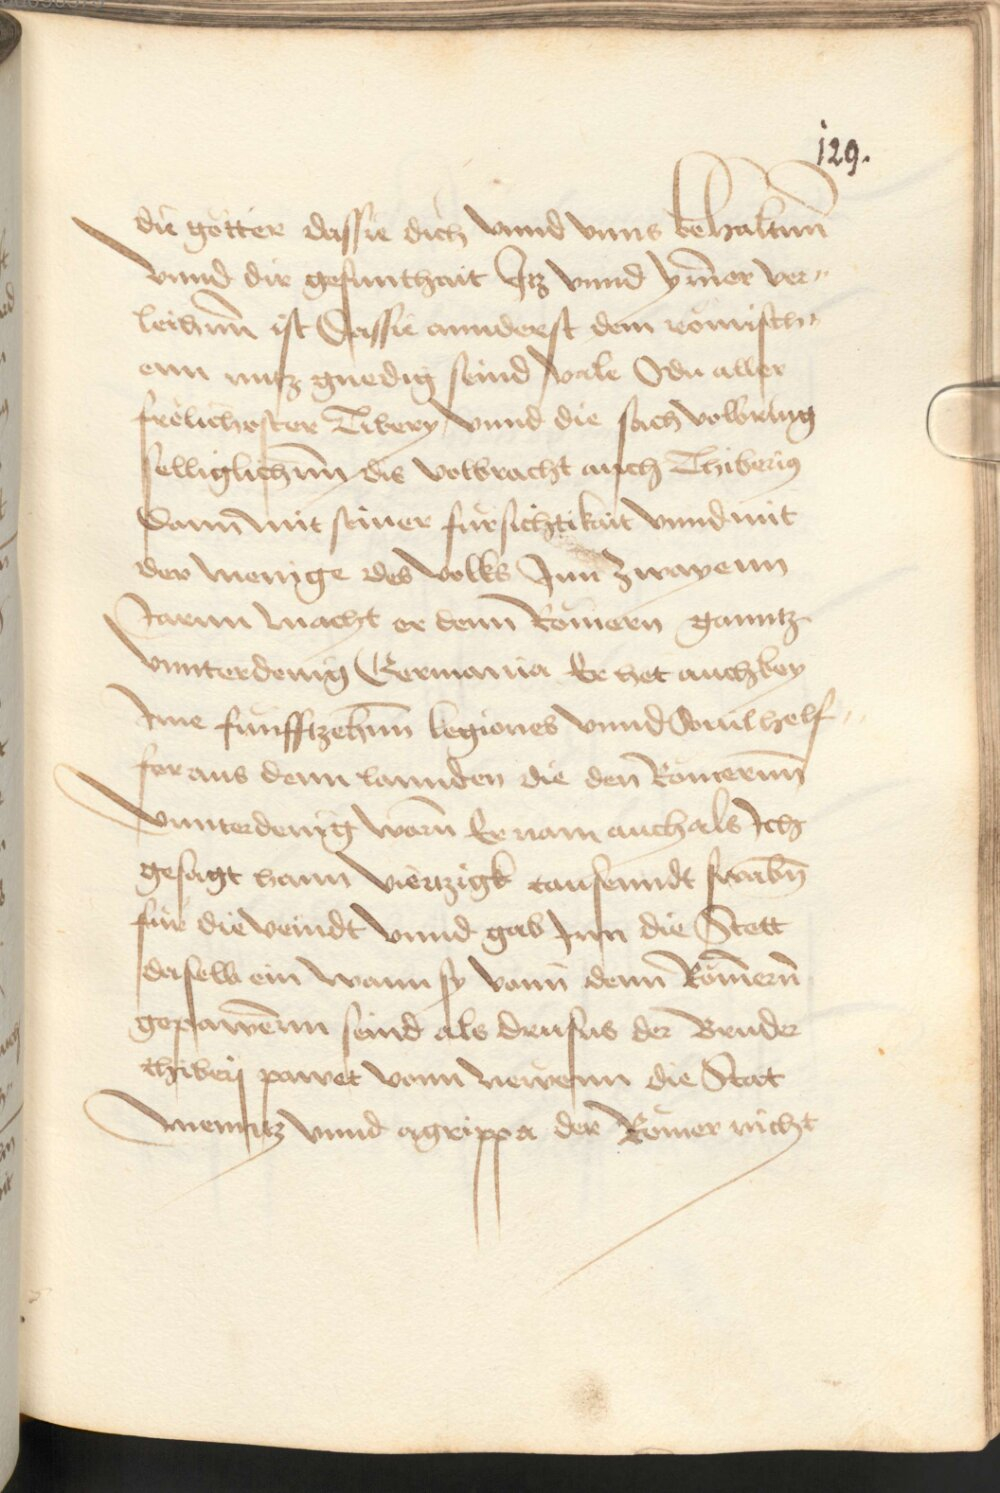 129.
die götter dassie dich vnnd vnns behaltnn
vnnd dir gesunthait Itz vnnd ymer ver„
leihnn ist Dassie annderst dem römisch„
enn nutz gnedig seind vale O du aller
frölichester Tibery vnnd die sach volbring
selliglichnn dis volbracht auch Thiberius
Dann mit seiner fursichtikait vnnd mit
der menige des volks Inn zwayenn
Jarnn macht er denn Römern ganntz
vnnterdenig Germania Er het auch bey
Ime funfftzehnn legiones vnnd souil helf„
fer aus denn lannden die den Römernn
vnnterdenig warn Er nam auch als Ich
gesagt hann viertzigk tausenndt swabn
für die veindt vnnd gab Inn die Stett
daselb ein wann sy vonn denn Römern
gepawenn seind als drusus der Bruder
thiberij pawet vonn newenn die Stat
menntz vnnd agrippa der Römer nicht